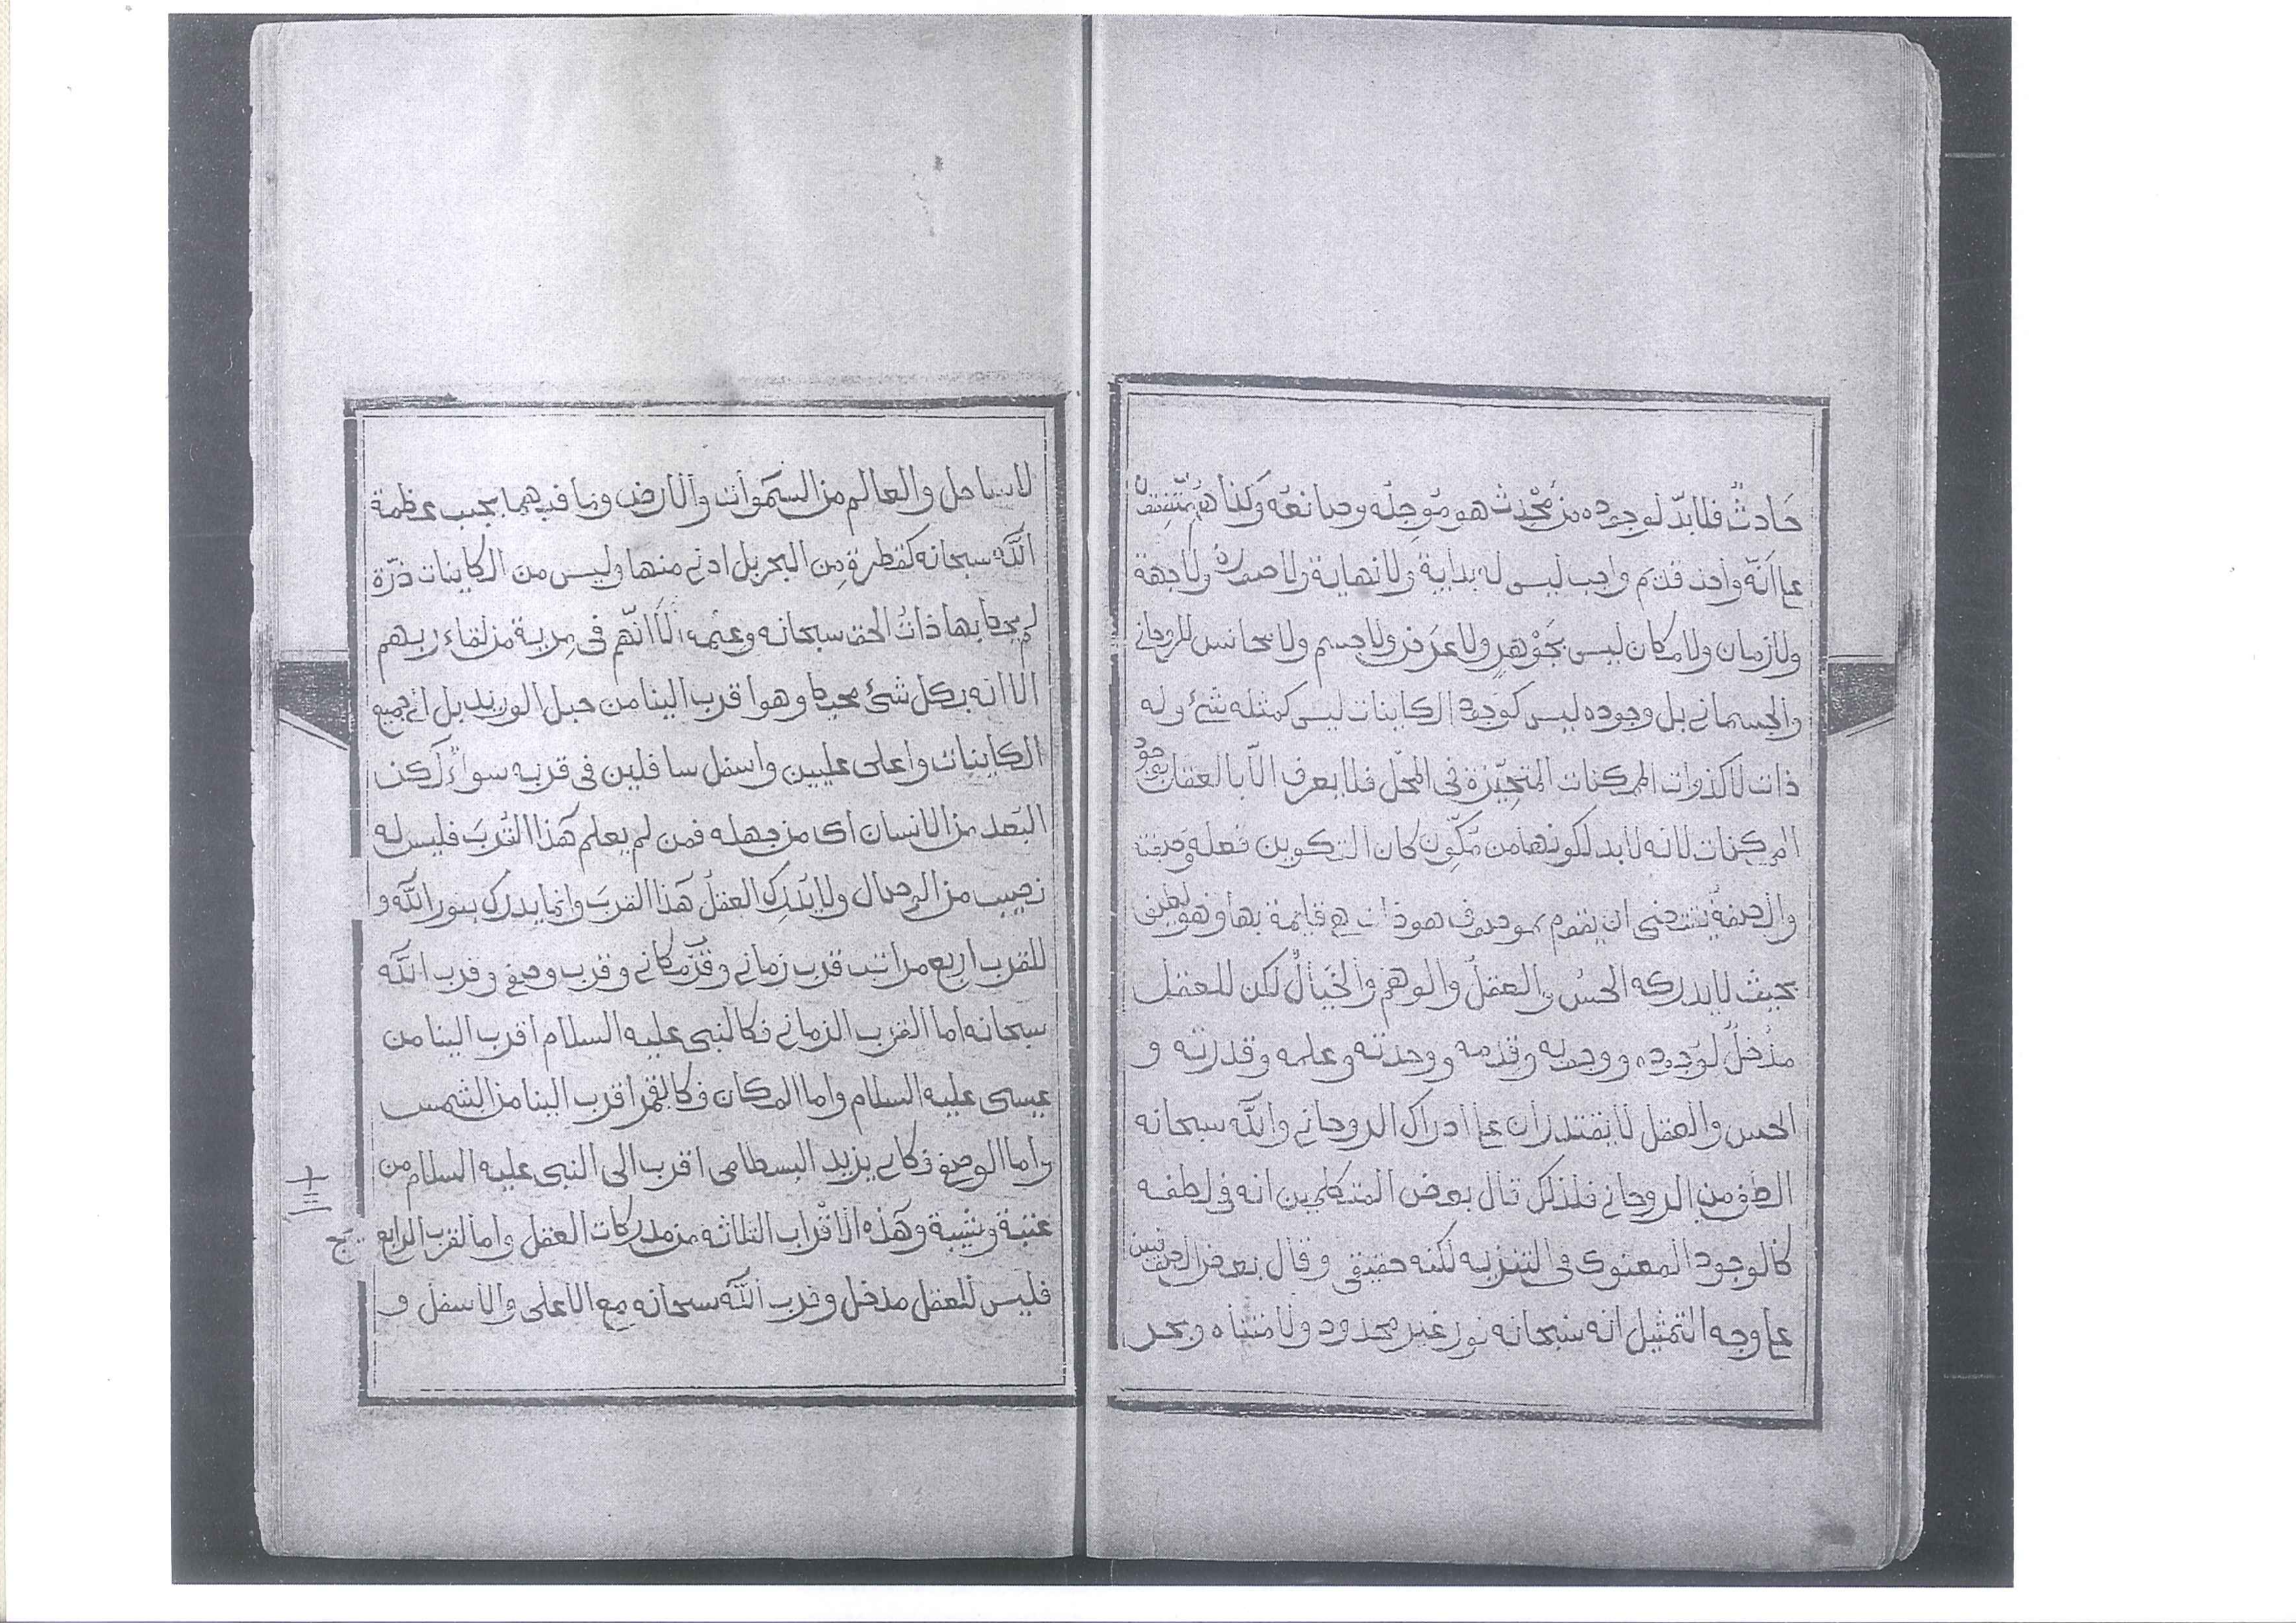 حَادثٌ فلا بدّ لوجوده من مُحْدِث هو مُوجِدُه وصانعُه وَكذا هُمْ متّفقون
على أنّه واحد قديم واجب ليس له بداية ولا نهاية ولا صورة ولا جهة
ولا زمان ولا مكان ليس بجَوْهرٍ ولا عَرَض ولا جسم ولا مجانس للروحاني
والجسماني بل وجوده ليس كوجود الكاينات ليس كمثله شئ وله
ذات لا كذوات الممكنات المتحيّزة في المحلّ فلا يعرف الّا بالعقل بوجود
الممكنات لانه لا بد لكونها من مكَوّن كان التكوين فعله وصفته
والصفةُ يقتضى ان يقوم بموصوف هو ذات هى قايمة بها وهو لطيف
بحيث لا يدركه الحسُ والعقلُ والوهم والخَيالُ لكن للعقل
مدْخلٌ لوجوده ووجوبه وقدمه ووحدته وعلمه وقدرته و
الحس والعقل لا يقتدران على ادراك الروحاني والله سبحانه
الطف من الروحاني فلذلك قال بعض المتكلمين انه فى لطفه
كالوجود المعنوى فى التنزيه لكنه حقيقى وقال بعض المحققين
على وجه التمثيل انه سبحانه نور غير محدود ولا متناه وبحر
لا ساحل والعالم من السَموات والارض وما فيهما بجنب عظمة
الله سبحانه كقطرة مِن البحر بل ادنى منها وليس من الكاينات ذرّة
لم يحط بها ذاتُ الحق سبحانه وعلمه الَا انّهم فى مِرية من لقاء ربهم
الا انه بكل شئ محيط وهو اقرب الينا من حبل الوريد بل الى جميع
الكاينات واعلى عليين واسفل سافلين فى قربه سواءٌ لكن
البَعد من الانسان اى من جهله فمن لم يعلم هَذا القُربَ فليس له
نصيب من الوصال ولا يُدرِك العقلُ هَذا القربَ وانما يدرك بنور الله و
للقرب اربع مراتب قرب زماني وقرب مكاني وقرب وصفى وقرب الله
سبحانه اما القرب الزماني فكالنبى عليه السلام اقرب الينا من
عيسى عليه السلام واما المكان فكالقمر اقرب الينا من الشمس
واما الوصفى فكابى يزيد البسطامى اقرب الى النبى عليه السلام من
عتبة وشيبة وهَذه الاقْراب الثلاثه من مدركات العقل واما القرب الرابع
فليس للعقل مدخل وقرب الله سبحانه مع الاعلى والاسفل و